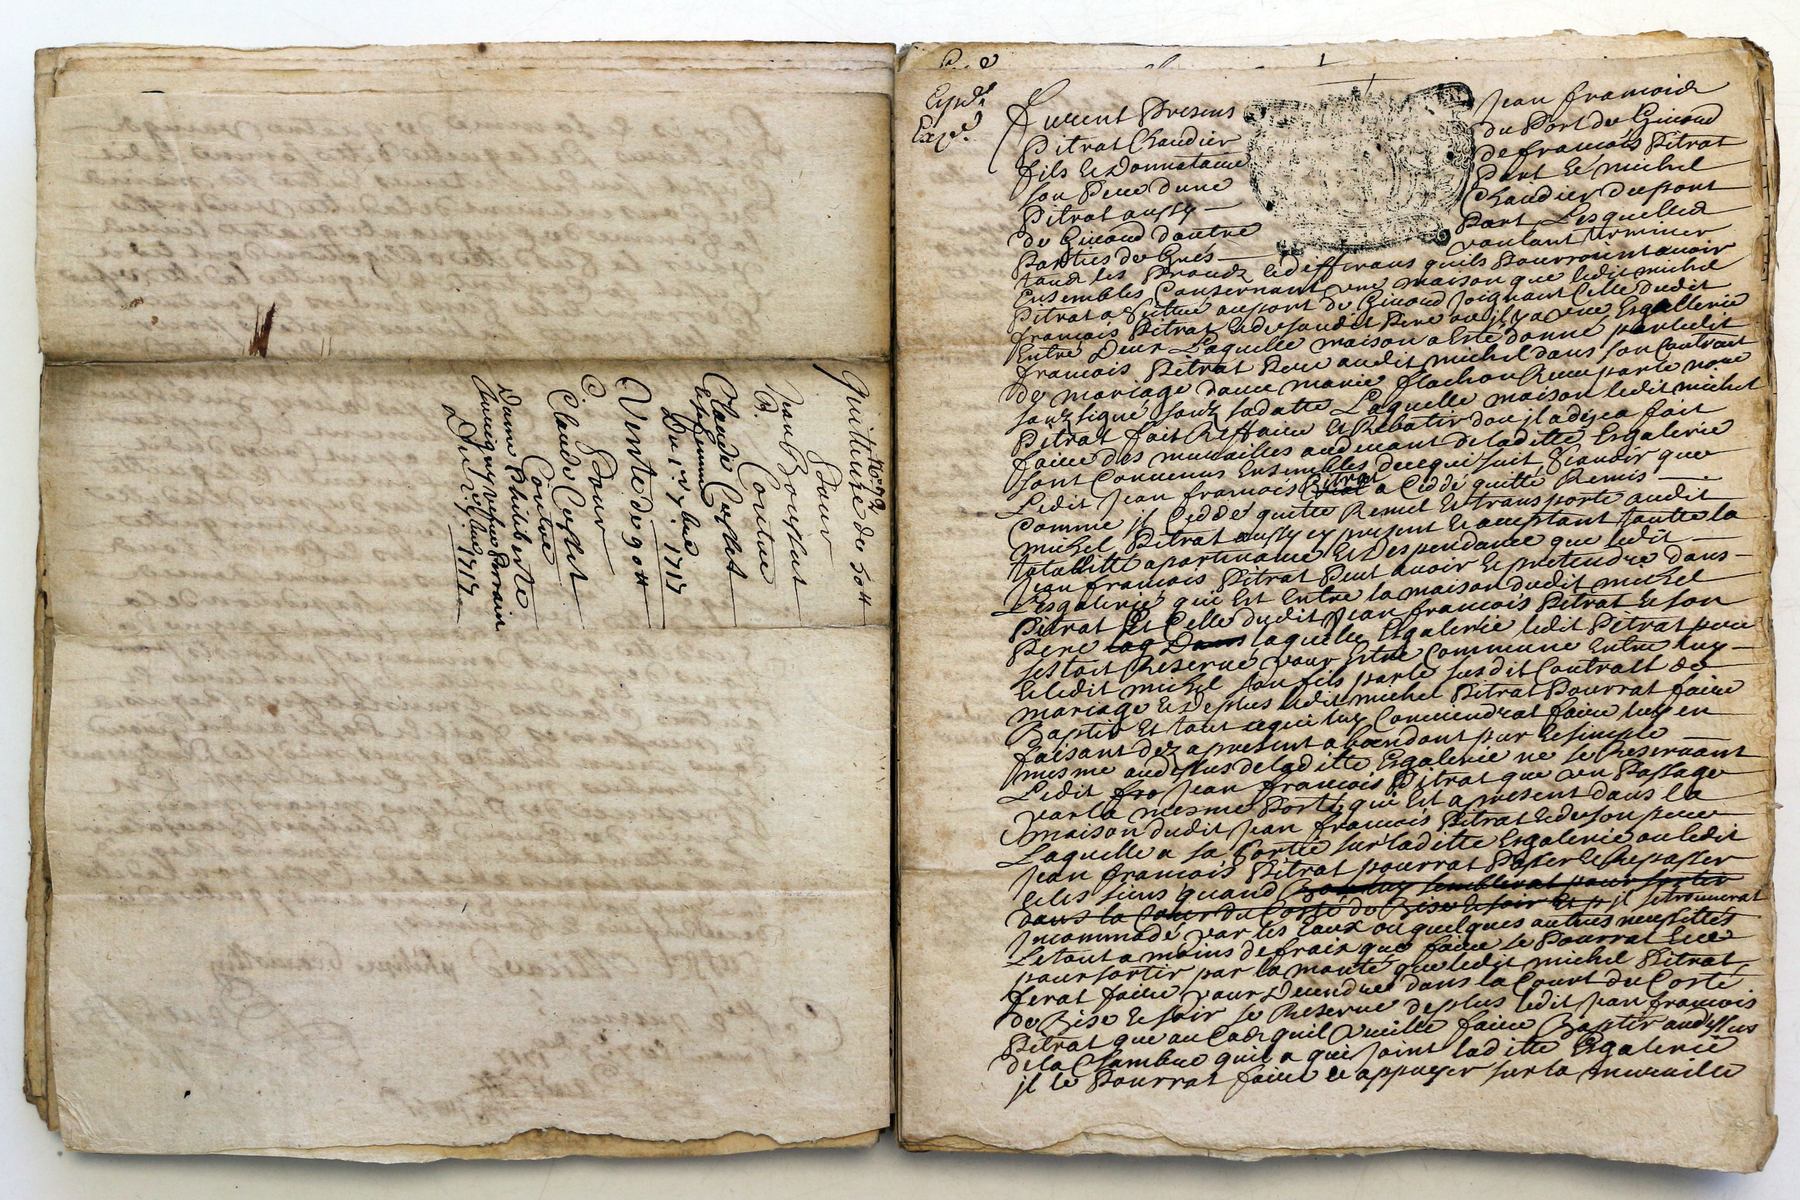 N° 92
Quittance de 50 tt
Pour
Jean Bouchut
Contre
Claude Cochet
et sa femme
Du 17 xbre 1717
Vente de 90 tt
Pour
Claude Cochet
Contre
Dame Philiberte
Du 1717
Exp.
Exp.
Furent Presens Jean francois
Pitrat Chandier du Port de Givord
fils Et Donnataire de francois Pitrat
son Pere dune Part Et michel
Pitrat aussy Chandier du port
de Givord dautre Part Lesquelles
Parties de Grés voulant terminer
tous les Procez et differans quils Pourroint avoir
Ensembles Consernant une maison que ledit michel
Pitrat a scitué au port de Givord Joignant Celle dudit
francois Pitrat et de son dit Pere ou il y a une Esgallerie
Entre Deux Laquelle maison a Esté donné par ledit
francois Pitrat Pere audit michel dans son Contrat
de mariage avec marie flachon Receu par le no.re
souz signé souz sa datte Laquelle maison ledit michel
Pitrat fait Reffaire Et Rebatir dou il a desja fait
faire des murailles au devant de la ditte Esgalerie
sont Convenus Ensembles de ce qui suit Scavoir que
Ledit Jean francois Pitrat a Ceddé quitté Remis
Comme il Cedde quitte Remet Et transporte audit
michel Pitrat aussy cy present Et aceptant toutte la
totallitté apartenance Et Despendance que ledit
Jean francois Pitrat Peut avoir Et pretendre dans
L'esgalerie qui Est Entre la maison dudit michel
Pitrat Et Celle dudit Jean francois Pitrat Et son
Pere laquelle Esgalerie ledit Pitrat pere
sestoit Reservé pour Estre Commune Entre luy
Et ledit michel son fils par le susdit Contratt de
mariage Et De plus ledit michel Pitrat Pourrat faire
Baptir Et tout ce qui luy Conviendrat faire luy en
faisant dez a present abandont pur Et simple
mesme au dessus de la ditte Esgalerie ne se Reservant
Ledit fro Jean francois Pitrat que un Passage
par la mesme Porte qui Est a present dans la
maison dudit Jean francois Pitrat Et de son pere
Laquelle a sa sortie sur laditte Esgalerie ou ledit
Jean francois Pitrat pourrat Passer Et Repasser
Et les siens quand bon luy semblerat pour sortir
dans la Cour du Costé de Bise Et soir Et s'il se trouverat
Incommodé par les Eaux ou quelques autres necessittés
Le tout a moins de frais que faire se Pourrat Et ce
pour sortir par la monté que ledit michel Pitrat
ferat faire pour Decendre dans la Court du Costé
de Bise Et soir se Reserve de plus ledit Jean francois
Pitrat que au Cas quil Vueille faire Baptir au dessus
de la Chambre quil a qui Joint laditte Esgalerie
il le Pourrat faire Et appuyer sur la muraille